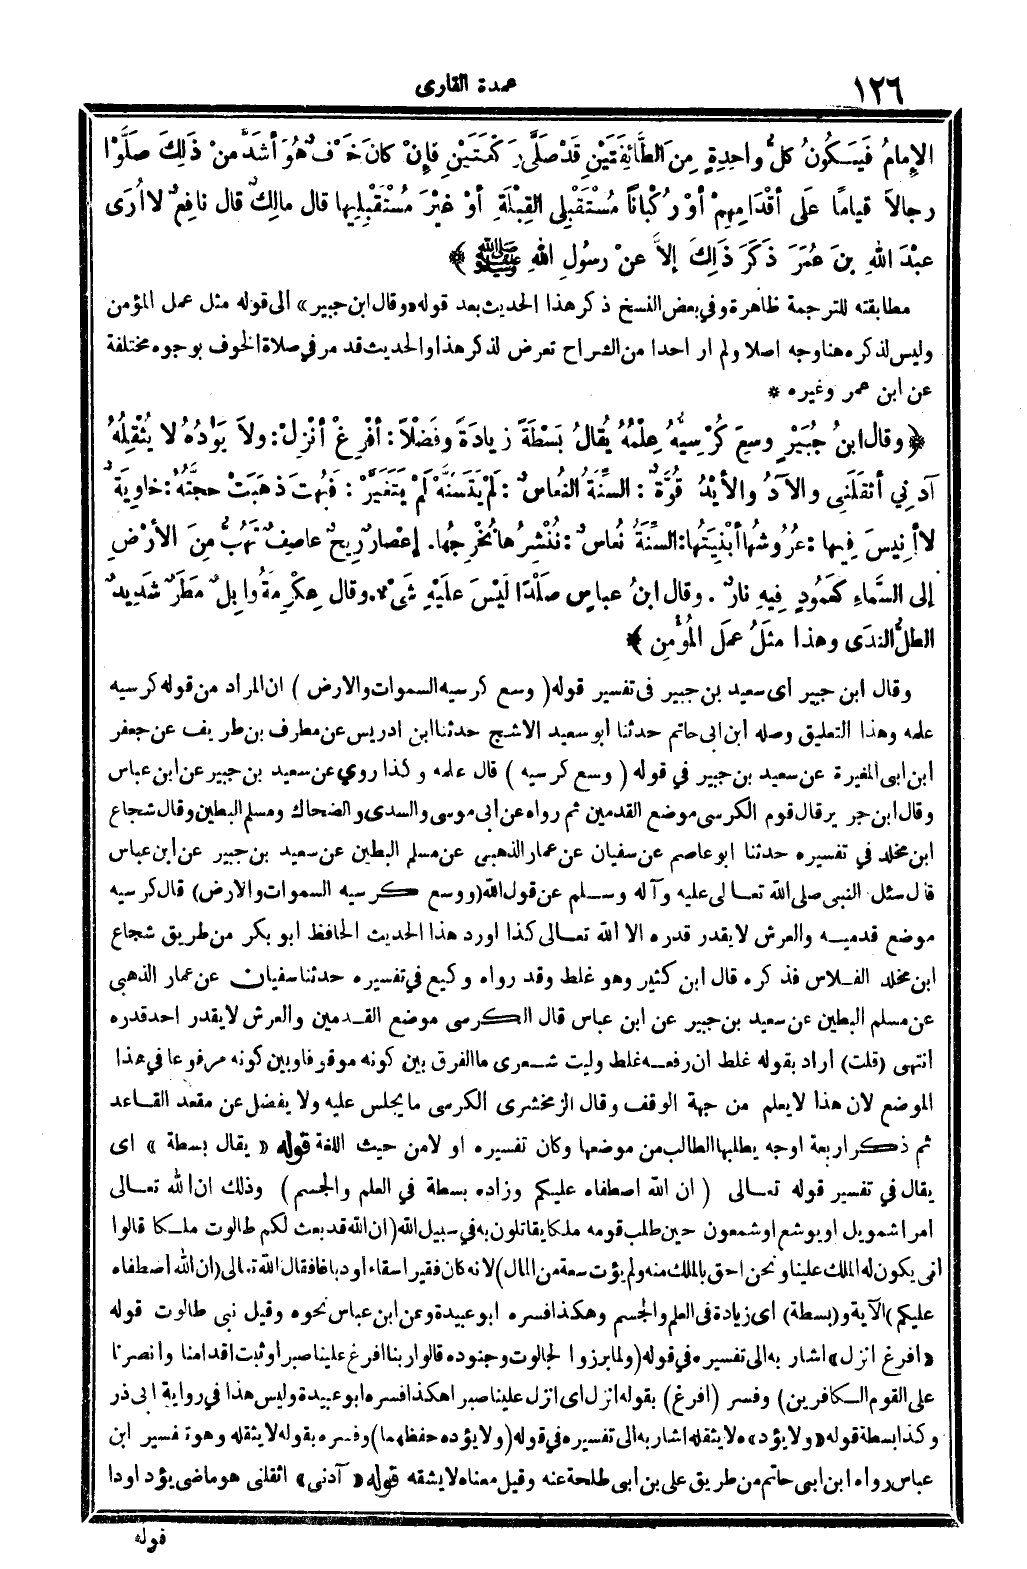 ١٢٦
عمدة القارى
الإمامُ فَيَكُونُ كلُّ واحِدِةٍ مِنَ الطَّائِفَتَيْنِ قَدْ صَلَّى رَكْعَتَيْنِ فإنْ كانَ خَوْفٌ هُوَ أشَدَّ منْ ذَلِكَ صَلَّوْا
رجالاً قياماً عَلَى أقْدَامِهِمْ أوْ رُكْباناً مُسْتَقْبِلِى القِبْلَةِ أوْ غيْرَ مُسْتَقْبِلِيها قال مالِكٌ قال نافِعٌ لا أُرَى
عبْدَ اللهِ بنَ عُمَرَ ذَكَرَ ذَلِكَ إلاَّ عنْ رسُولِ اللهِ ﷺ ﴾
مطابقته للترجمة ظاهرة وفي بعض النسخ ذكر هذا الحديث بعد قوله «وقال ابن جبير» الى قوله مثل عمل المؤمن
وليس لذكره هنا وجه اصلا ولم ار احدا من الشراح تعرض لذكر هذا والحديث قد مر في صلاة الخوف بوجوه مختلفة
عن ابن عمر وغيره *
﴿ وقال ابنُ جُبَيْرٍ وسِعَ كُرْسِيُّهُ عِلْمُهُ يُقالُ بَسْطَةً زيادَةً وفَضْلاً : أفْرِغْ أنْزِلْ : ولاَ يَؤُدُهُ لا يُثْقِلُهُ
آدَنِي أثقَلَنِى والآدُ والأيْدُ قُوَّةٌ : السِّنَةُ النُعاسُ : لَمْ يَتَسَنَّهْ لَمْ يَتَغَيَّرْ : فَبُهِتَ ذهَبَتْ حجتُهُ : خاوِيَةٌ
لا أنِيسَ فِيها : عُرُوشُها أبْنِيَتُها : السِّنَةُ نُعاسٌ : نُنْشِرُها نُخْرِجُها. إعْصارٌ رِيحٌ عاصِفٌ تَهُبُّ مِنَ الأرْضِ
إلى السَّماءِ كَعَمُودٍ فِيهِ نارٌ . وقال ابنُ عباسٍ صَلْدًا لَيْسَ علَيْهِ شَىْءٌ. وقال عِكْرِمَةُ وابِلٌ مَطَرٌ شَدِيدٌ
الطَلُّ النَدَى وهذا مثَلُ عمَلِ المُؤْمِنِ ﴾
وقال ابن جبير اى سعيد بن جبير فى تفسير قوله ( وسع كرسيه السموات والارض ) ان المراد من قوله كرسيه
علمه وهذا التعليق وصله ابن ابى حاتم حدثنا ابو سعيد الاشج حدثنا ابن ادريس عن مطرف بن طريف عن جعفر
ابن ابى المغيرة عن سعيد بن جبير في قوله ( وسع كرسيه ) قال علمه وكذا روي عن سعيد بن جبير عن ابن عباس
وقال ابن جرير قال قوم الكرسى موضع القدمين ثم رواه عن ابى موسى والسدى والضحاك ومسلم البطين وقال شجاع
ابن مخلد في تفسيره حدثنا ابو عاصم عن سفيان عن عمار الذهبى عن مسلم البطين عن سعيد بن جبير عن ابن عباس
قال سئل النبى صلى الله تعالى عليه وآله وسلم عن قول الله (ووسع كرسيه السموات والارض) قال كرسيه
موضع قدميه والعرش لا يقدر قدره الا الله تعالى كذا اورد هذا الحديث الحافظ ابو بكر من طريق شجاع
ابن مخلد الفلاس فذكره قال ابن كثير وهو غلط وقد رواه وكيع في تفسيره حدثنا سفيان عن عمار الذهبي
عن مسلم البطين عن سعيد بن جبير عن ابن عباس قال الكرسى موضع القدمين والعرش لا يقدر احد قدره
انتهى (قلت) اراد بقوله غلط ان رفعه غلط وليت شعرى ما الفرق بين كونه موقوفا وبين كونه مرفوعا في هذا
الموضع لان هذا لا يعلم من جهة الوقف وقال الزمخشرى الكرسى ما يجلس عليه ولا يفضل عن مقعد القاعد
ثم ذكر اربعة اوجه يطلبها الطالب من موضعها وكان تفسيره او لا من حيث اللغة قوله « يقال بسطة » اى
يقال في تفسير قوله تعالى ( ان الله اصطفاه عليكم وزاده بسطة في العلم والجسم ) وذلك ان الله تعالى
امر اشمويل او يوشع او شمعون حين طلب قومه ملكا يقاتلون به في سبيل الله (ان الله قد بعث لكم طالوت ملكا قالوا
انى يكون له الملك علينا ونحن احق بالملك منه ولم يؤت سعة من المال) لانه كان فقيرا سقاء او دباغا فقال الله تعالى (ان الله اصطفاه
عليكم) الآية و(بسطة) اى زيادة فى العلم والجسم وهكذا فسره ابو عبيدة وعن ابن عباس نحوه وقيل نبى طالوت قوله
«افرغ انزل» اشار به الى تفسيره في قوله (ولما برزوا لجالوت وجنوده قالوا ربنا افرغ علينا صبرا وثبت اقدامنا وانصرنا
على القوم الكافرين) وفسر (افرغ) بقوله انزل اى انزل علينا صبرا هكذا فسره ابو عبيدة وليس هذا في رواية ابى ذر
وكذا بسطة قوله «ولا يؤده» لا يثقله اشار به الى تفسيره في قوله (ولا يؤده حفظهما) وفسره بقوله لا يثقله وهو تفسير ابن
عباس رواه ابن ابى حاتم من طريق على بن ابى طلحة عنه وقيل معناه لا يشقه قوله «آدنى» اثقلنى هو ماضى يؤد اودا
قوله